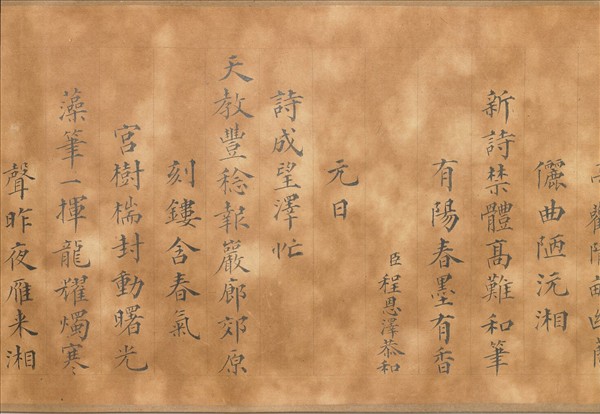 儷曲陋沅湘
新詩禁體髙難和筆
有陽春墨有香
臣程恩澤恭和
元日
詩成望澤忙
天教豐稔報巖廊郊原
刻鏤含春氣
宮樹椯封動曙光
藻筆一揮龍耀燭寒
聲昨夜雁来湘